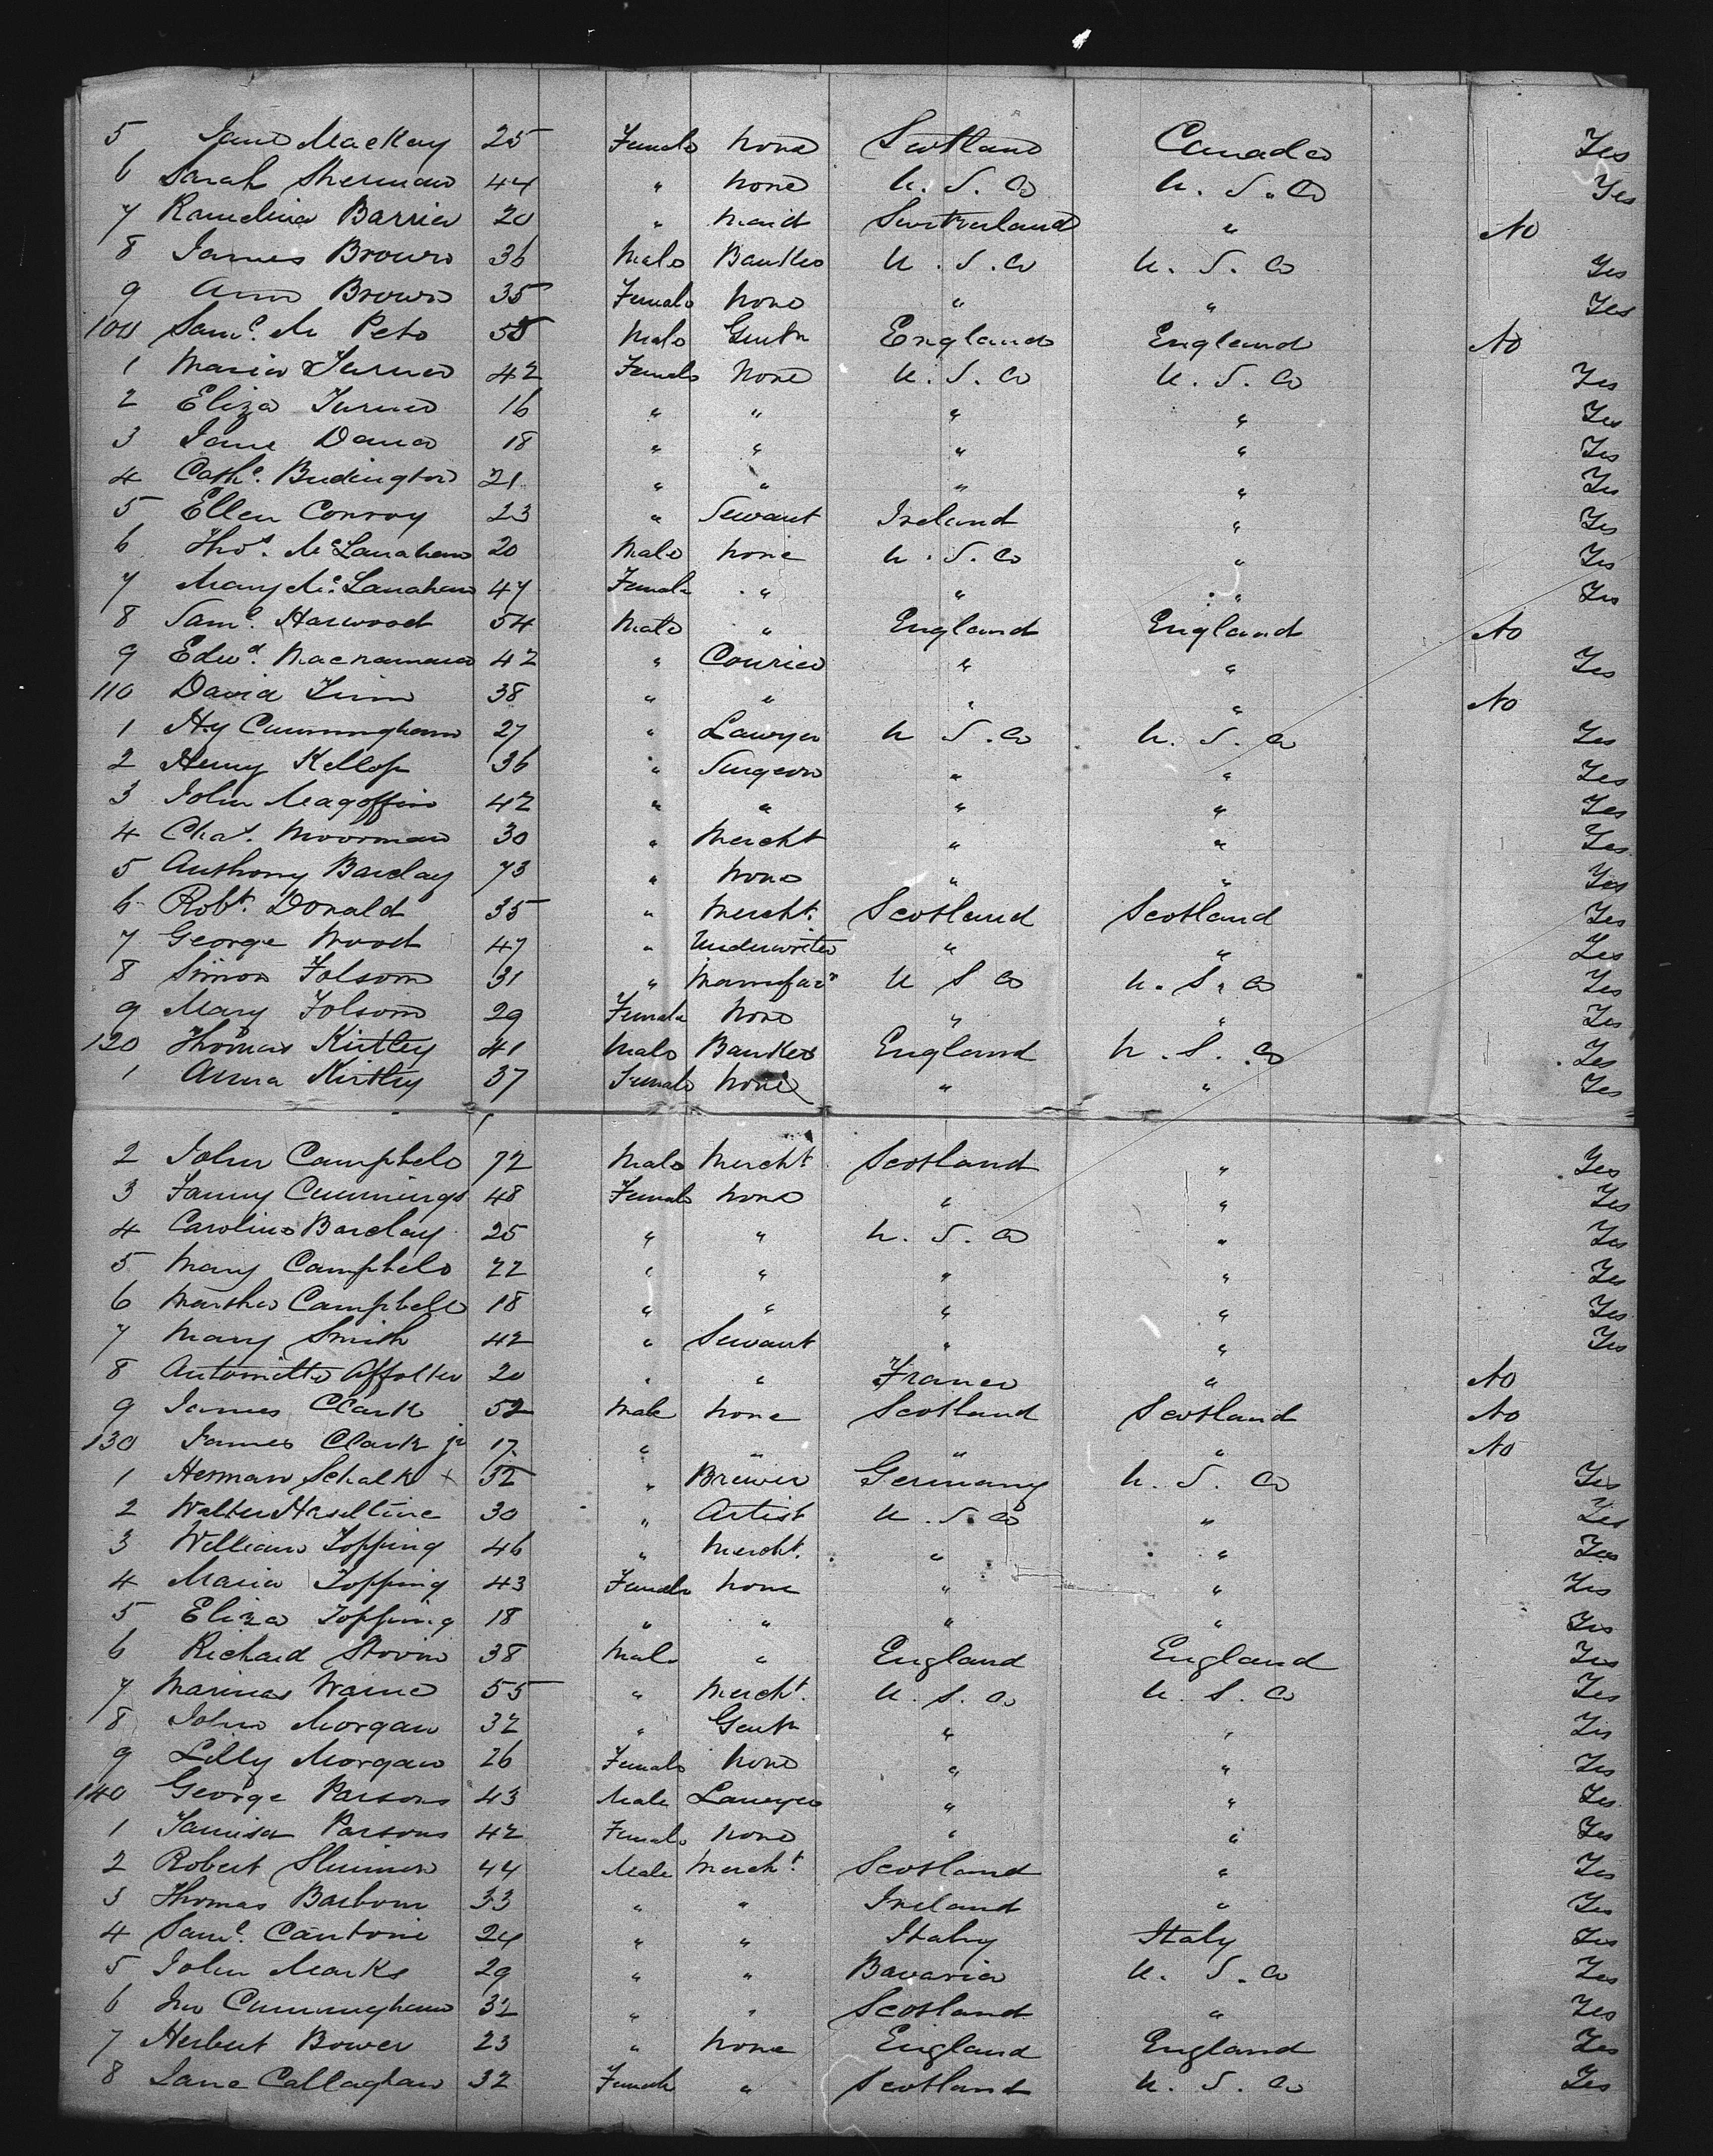 5 Jane MacKay 25 Female None Scotland Canada Yes
6 Sarah Sherman 44 " None U.S.A U.S.A Yes
7 Barrie 20 " Maid Switzerland " No
8 James Brown 36 Male Banker U.S.A U.S.A Yes
9 Ann Brown 35 Female None " " Yes
100 Saml. M Peto 55 Male Gentn England England No
1 Maria Turner 42 Female None U.S.A U.S.A Yes
2 Eliza Turner 16 " " " " Yes
3 Jane Dana 18 " " " " Yes
4 Cathe. Budington 21 " " " " Yes
5 Ellen Conroy 23 " Servant Ireland " Yes
6 Thos. McLanahan 20 Male None U.S.A " Yes
7 Mary McLanahan 47 Female " " " Yes
8 Saml. Harwood 54 Male " England England No
9 Edwd. Macnamara 42 " Courier " " Yes
110 David 38 " " " " No
1 Hy Cunningham 27 " Lawyer U S.A U.S.A Yes
2 Henry Kellop 36 " Surgeon " " Yes
3 John Magoffin 42 " " " " Yes
4 Chas. Moorman 30 " Mercht " " Yes
5 Anthony Barclay 73 " None " " Yes
6 Robt. Donald 35 " Mercht. Scotland Scotland Yes
7 George Wood 47 " Underwriter " " Yes
8 Simon Folsom 31 " U S A U.S.A Yes
9 Mary Folsom 29 Female None " " Yes
120 Thomas Kirtley 41 Male Banker England U.S.A Yes
1 Anna Kirtley 37 Female None " " Yes
2 John Campbell 72 Male Mercht. Scotland " Yes
3 Fanny Cummings 48 Female None " " Yes
4 Caroline Barclay 25 " " U.S.A " Yes
5 Mary Campbell 22 " " " " Yes
6 Martha Campbell 18 " " " " Yes
7 Mary Smith 42 " Servant " " Yes
8 Antoinette Affolter 20 " " France " No
9 James Clark 52 Male None Scotland Scotland No
130 James Clark jr 17 " " " " No
1 Herman Schalk x 32 " Brewer Germany U.S.A Yes
2 Walter Haseltine 30 " Artist U.S.A " Yes
3 William Topping 46 " Mercht. " " Yes
4 Maria Topping 43 Female None " " Yes
5 Eliza Topping 18 " " " " Yes
6 Richard Stovin 38 Male " England England Yes
7 55 " Mercht. U.S.A U.S.A Yes
8 John Morgan 32 " Gentn " " Yes
9 Lilly Morgan 26 Female None " " Yes
140 George Parsons 43 Male Lawyer " " Yes
1 Parsons 42 Female None " " Yes
2 Robert 44 Male Mercht. Scotland " Yes
3 Thomas Barbour 33 " " Ireland " Yes
4 Saml. Cantoni 24 " " Italy Italy Yes
5 John Marks 29 " " Bavaria U.S.A Yes
6 Jno Cunningham 32 " " Scotland " Yes
7 Herbert Bower 23 " None England England Yes
8 Jane Callaghan 32 Female " Scotland U.S.A Yes